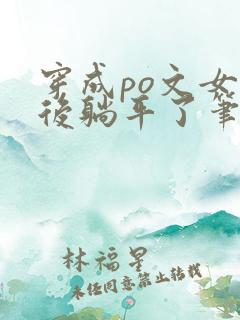 穿成po文女
後躺平了筆
林福星
未经同意禁止转载